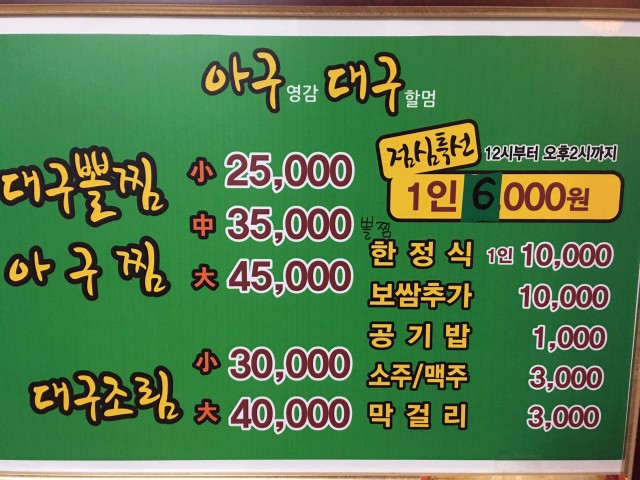 아구영감 대구할멈
대구뽈찜
아구찜
小 25,000
中 35,000
大 45,000
대구조림
小 30,000
大 40,000
점심특선 12시부터 오후2시까지
1인 6,000원
뽈찜
한정식 1인 10,000
보쌈추가 10,000
공기밥 1,000
소주/맥주 3,000
막걸리 3,000